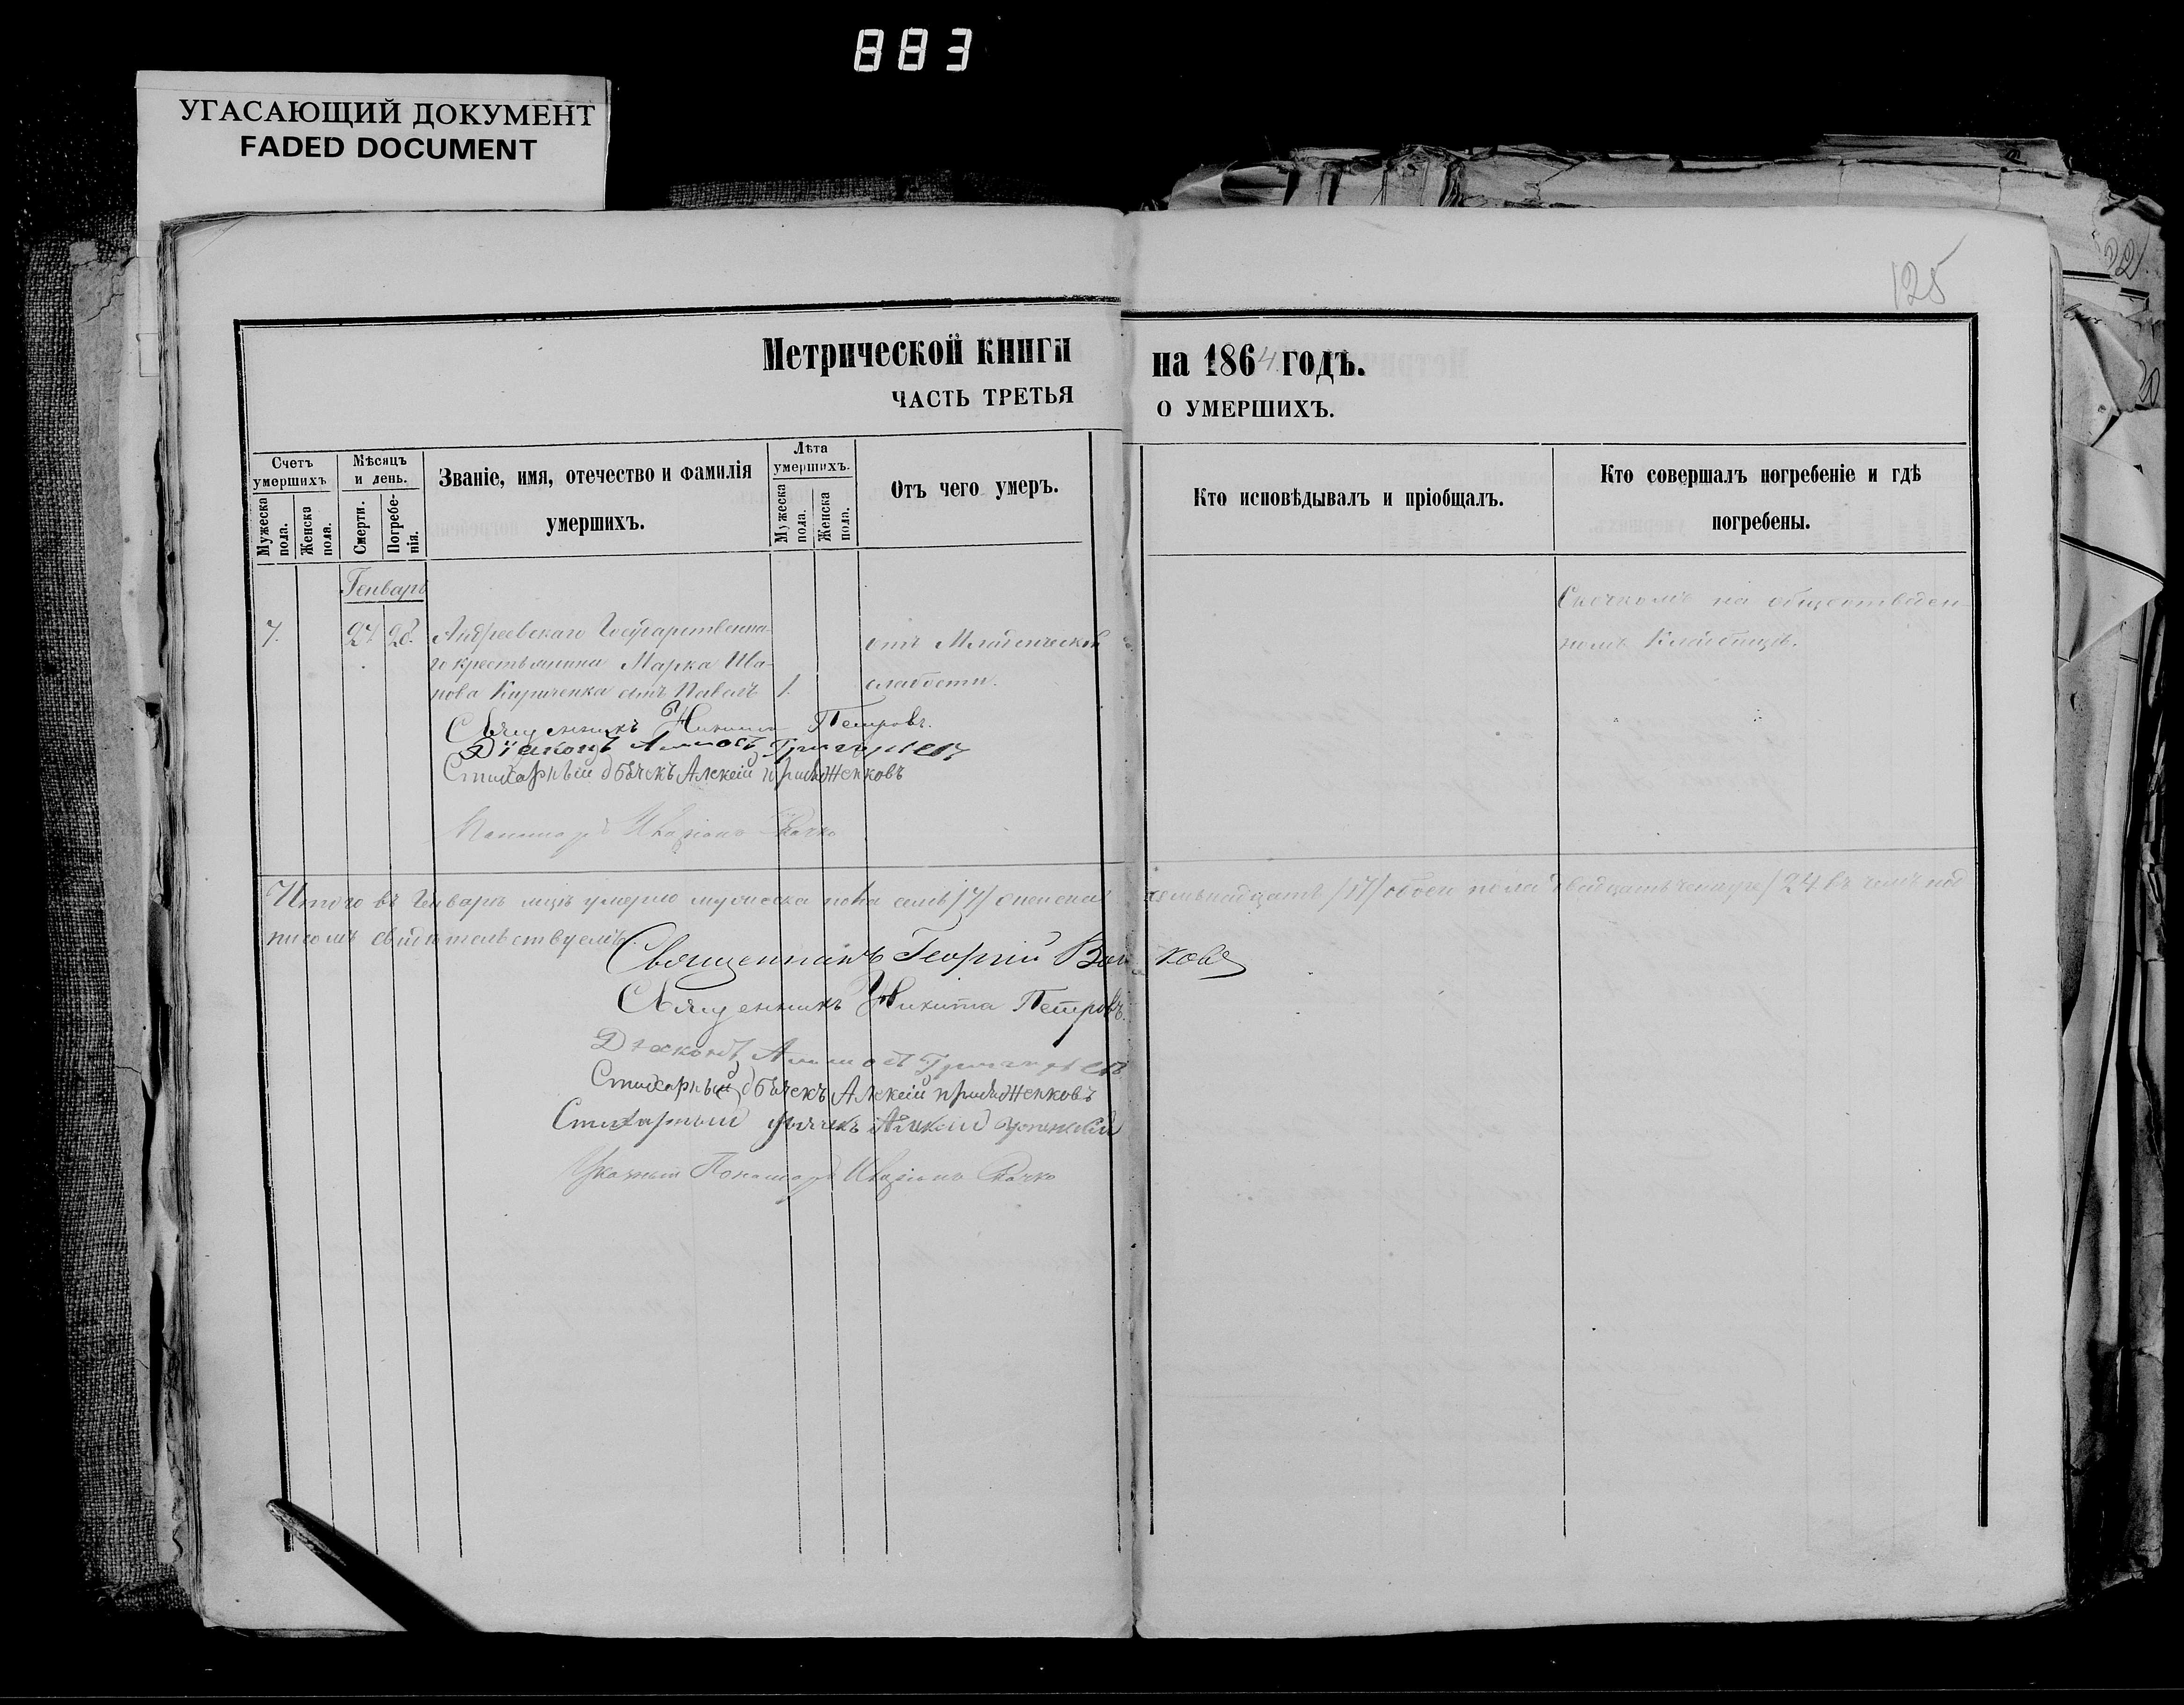 883
УГАСАЮЩИЙ ДОКУМЕНТ
FADED DOCUMENT
22
125
Метрической книги на 1864 годъ.
ЧАСТЬ ТРЕТЬЯ О УМЕРШИХЪ.
Счетъ умершихъ
Мужеска пола.
Женска пола.
Мѣсяцъ и день.
Смерти.
Погребенія.
Званіе, имя, отечество и фамилія
умершихъ.
Лѣта умершихъ.
Мужеска пола.
Женска пола.
Отъ чего умеръ.
Кто исповѣдывалъ и пріобщалъ.
Кто совершалъ погребеніе и гдѣ
погребены.
Генварь
7. 27 28. Андреевскаго Государственна- отъ Младенческой на обществен
го крестьянина Марка Ива- номъ Кладбищѣ.
нова Кириченка сынъ Павелъ 1. слабости.
Священникъ Никита Петровъ.
Діаконъ Григорьевъ
Стихарный дьячекъ Алексій
Пономарь Иларіонъ
Итого въ Генварѣ мцѣ умерло мужеска пола семь /7/ женска семьнадцать /17/ обоего пола двадцать четыре / 24 въ чемъ под
писомъ свидѣтельствуемъ.
Священникъ Георгій
Священникъ Никита Петровъ.
Діаконъ Григорьевъ
Стихарный дьячекъ Алексій
Стихарный дьячекъ Алексій
Указный Пономарь Иларіонъ